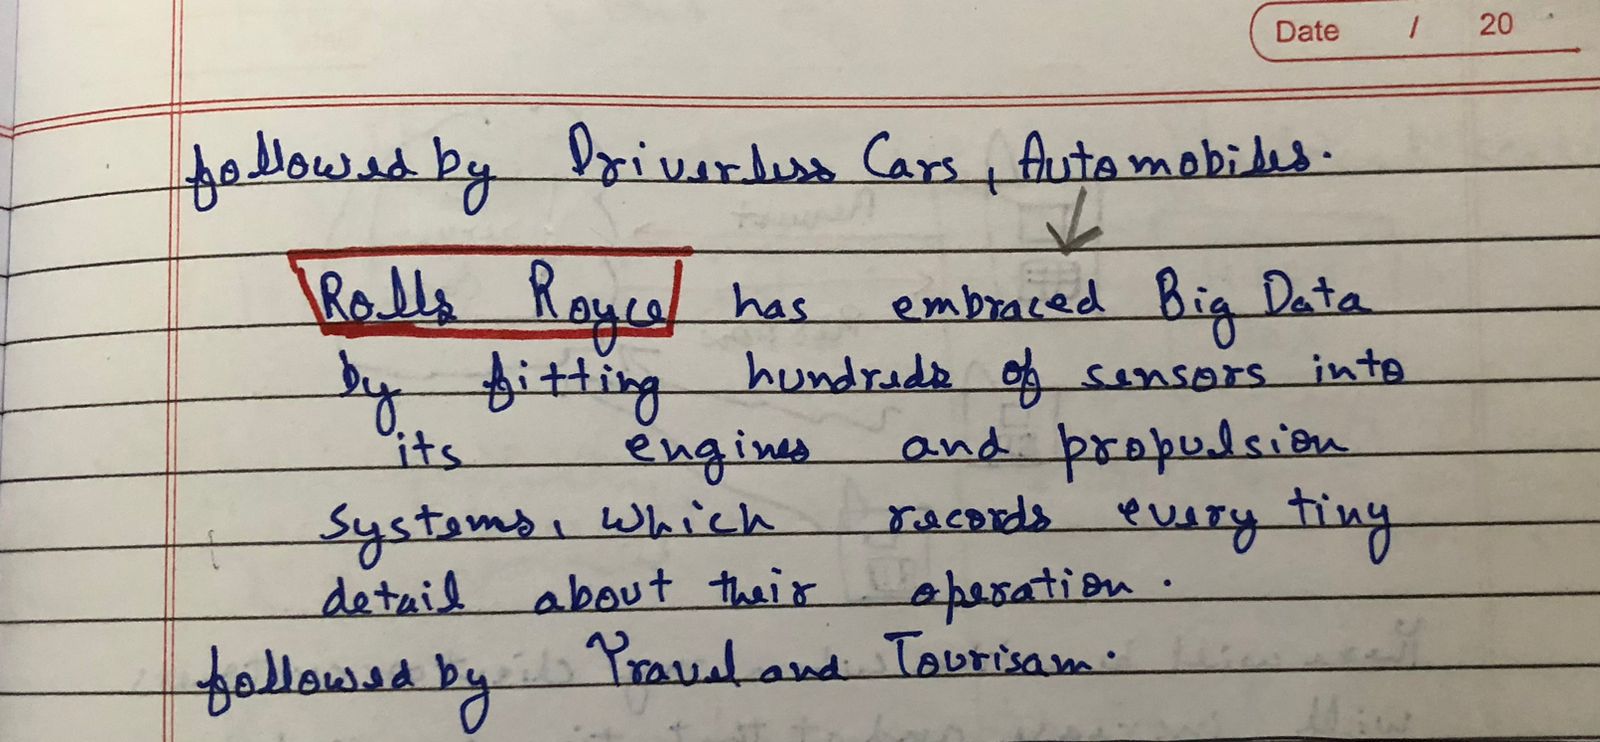 Date / 20
followed by Driverless Cars, Automobiles.
Rolls Royce has embraced Big Data
by fitting hundreds of sensors into
its engines and propulsion
systems, which records every tiny
detail about their operation.
followed by Travel and Tourisam.